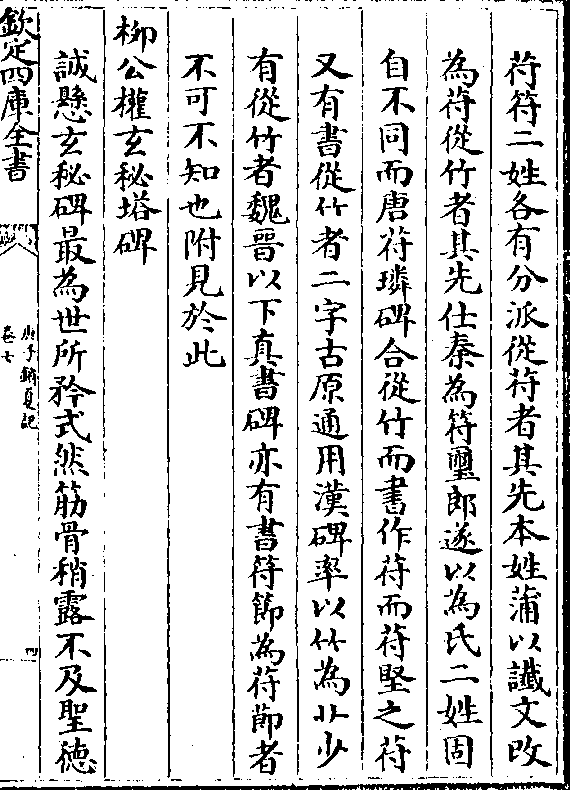 苻符二姓各有分派從苻者其先本姓蒲以讖文改
為苻從竹者其先仕秦為符璽郎遂以為氏二姓固
自不同而唐苻璘碑合從竹而書作苻而苻堅之苻
又有書從竹者二字古原通用漢碑率以竹為艸少
有從竹者魏晉以下真書碑亦有書符節為苻莭者
不可不知也附見於此
柳公權玄秘塔碑
誠懸玄秘碑最為世所矜式然筋骨稍露不及聖德
欽定四庫全書
庚子銷夏記
卷七
四